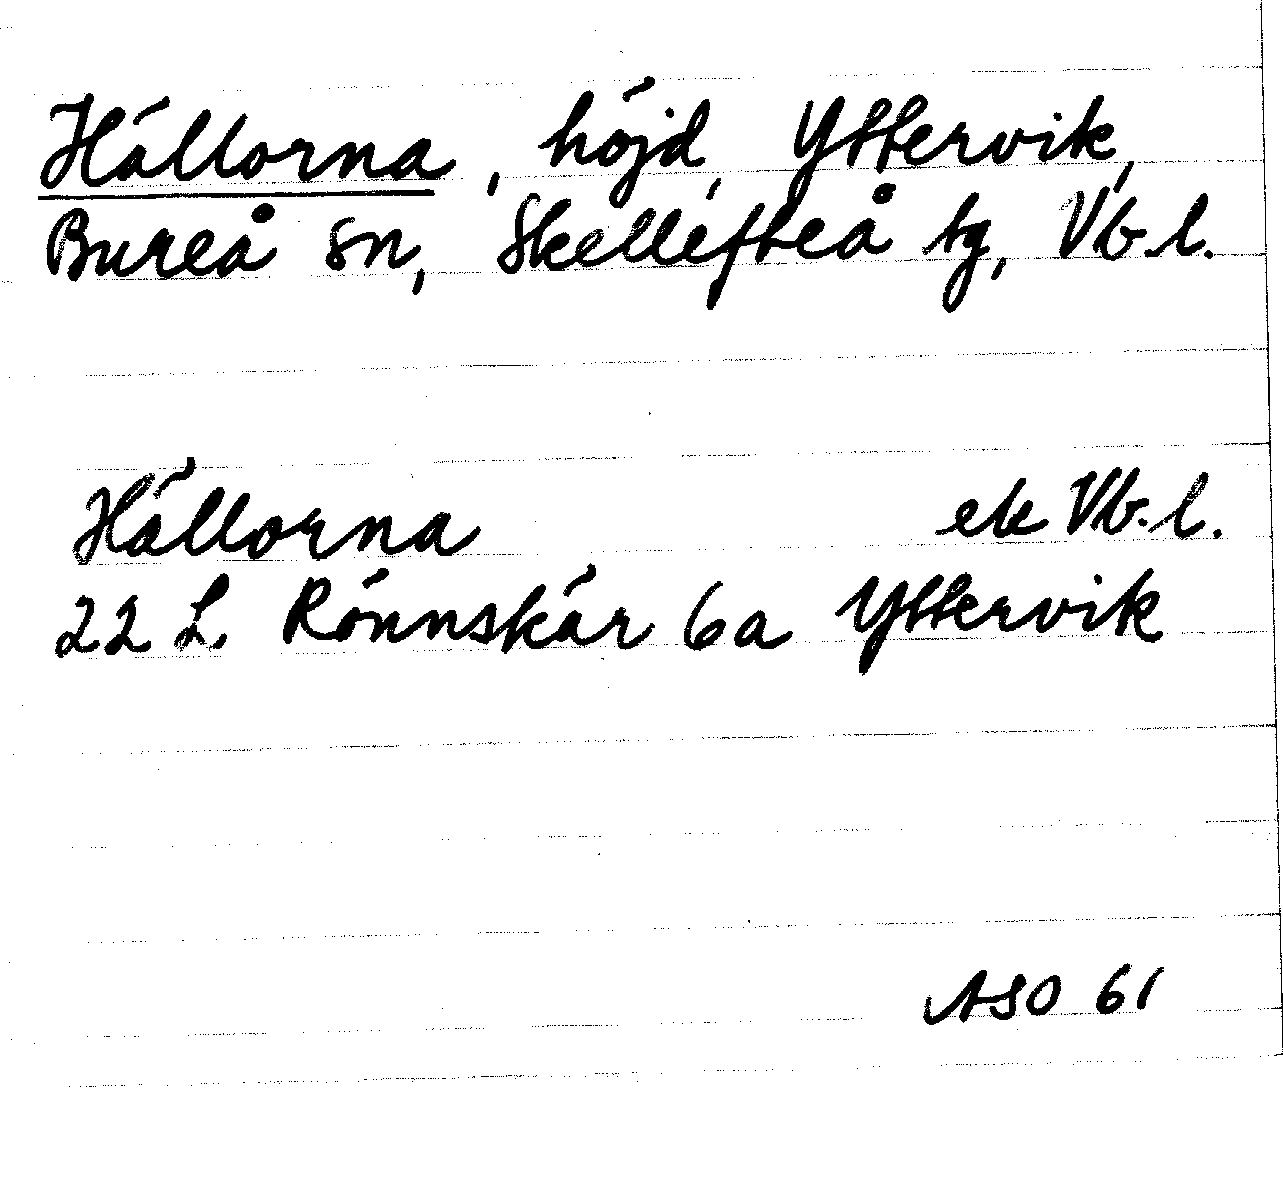 Hällorna, höjd, Yttervik,
Bureå sn, Skellefteå tg, Vb.l.
Hällorna ek Vb.l.
22 L. Rönnskär 6a Yttervik
ASO 61